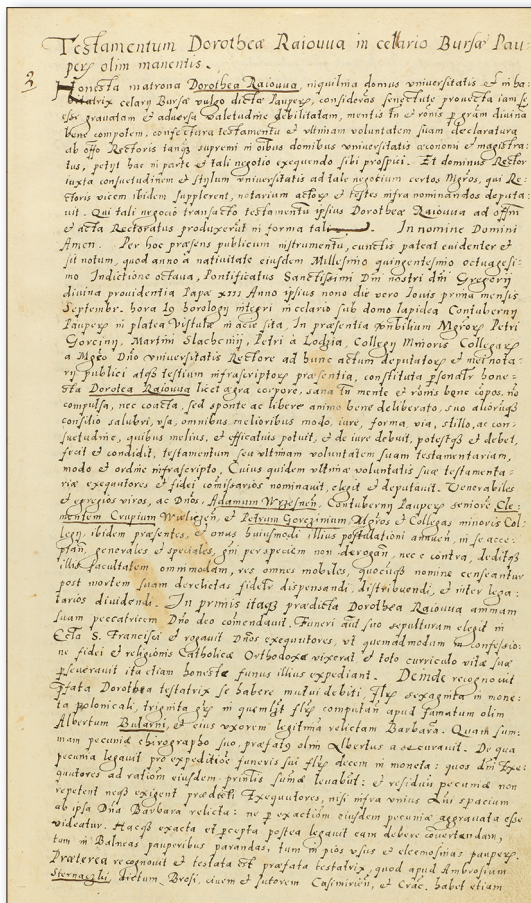 Testamentum Dorotheæ Raiovva in cellario Bursæ Pau-
perū olim manentis.
2
Honesta matrona Dorothea Raiovva, inquilina domus vniuersitatis et inha-
bitatrix celarij Bursæ vulgo dictæ Pauperū, considerās senectute prouecta iam se
esse grauatam et aduersa valetudine debilitatam, mentis tn̄ et rōnis p̱ grām diuina
bene compotem, confectura testamentū et vltimam voluntatem suam declaratura
ab offō Rectoris tanq̄ȝ supremi in oībus domibus vniuersitatis œconomi et magistra-
tus, petijt hac in parte et tali negotio exequendo sibi prospici. Et dominus Rector
iuxta consuetudinem et stylum vniuersitatis ad tale negotium certos Mgrōs, qui Re-
ctoris vicem ibidem supplerent, notarium actorū et testes infra nominandos deputa-
uit. Qui tali negocio transacto testamentū ipsius Dorotheæ Raiovva ad offm̄
et acta Rectoratus produxerūt in forma tali. In nomine Domini
Amen. Per hoc præsens publicum instrumentū, cunctis pateat euidenter et
sit notum, quod anno a natiuitate eiusdem Millesmo quingentesimo octuagesi-
mo Indictione octaua, Pontificatus Sanctissimi Dm̄ nostri dn̄i Gregorij
diuina prouidentia Papæ XIII Anno ipsius nono die vero Iouis prima mensis
Septembr. hora 19 horologij integri in celario sub domo lapidea Contubernij
Pauperū in platea Vistulæ in acie sita, In præsentia Petri
Gorciny, Martini Slachcinij, Petri à Lodzia, Collegij Minoris Collegarū
a Mgco Dn̄o vniuersitatis Rectore ad hunc actum deputatorū et mei nota-
rij publici atqȝ testium infrascriptorū præsentia, constituta p̱sonalr̄ hone-
sta Dorotea Raiouua licet ægra corpore, sana tn̄ mente et rōnis bene cōpos, nō
compulsa, nec coacta, sed sponte ac libere animo bene deliberato, suo aliorūqȝ
consilio salubri, vsa, omnibus melioribus modo, iure, forma, via, stillo, ac con-
suetudine, quibus melius, et efficatius potuit, et de iure debuit, potestqȝ et debet,
fecit et condidit, testamentum seu vltimam voluntatem suam testamentariam,
modo et ordine infrascripto, Cuius quidem vltimæ voluntatis suæ testamenta-
riæ exequutores et fidei com̄issarios nominauit, elegit et deputauit. Venerabiles
et egregios viros, ac Dn̄os, Adamum Contubernij Pauperū seniorē, Cle-
mentem Crupium et Petrum Gorczinium, Mgrōs et Collegas minoris Col-
legij, ibidem præsentes, et onus huiusmodi illius postulationi annuen̄, in se acce-
ptan̄, generales et speciales, gn̄i per speciem non derogan̄, nec e contra, deditqȝ
illis facultatem om̄imodam, res omnes mobiles, quocūqȝ nomine censeantur
post mortem suam derelictas fidelr̄ dispensandi, distribuendi, et inter lega-
tarios diuidendi. In primis itaqȝ prædicta Dorothea Raiouua animam
suam peccatricem Dn̄o deo com̄endauit. Funeri aūt suo sepulturam elegit in
Eccla S. Francisci et rogauit Dn̄os exequutores, vt quemadmodum in confessio-
ne fidei et religionis Catholicæ Orthodoxæ vixerat et toto curriculo vitæ suæ
p̱seuerauit ita etiam honeste funus illius expediant. Deinde recognouit
p̄fata Dorothea testatrix se habere mutui debiti flr̄ sexaginta in mone-
ta polonicali, triginta gr̄ in quemlibt flr̄ computan̄ apud famatum olim
Albertum Bularni, et eius vxorem legitimā relictam Barbara. Quam sum-
mam pecuniæ chirographo suo, præfatus olim Albertus assecurauit. De qua
pecunia legauit pro expeditiōe funeris sui flr̄ decem in moneta: quos dn̄i Exe-
quutores ad rationem eiusdem principalis sum̄æ leuabūt: et residuū pecuniæ non
repetent neqȝ exigent prædicti Exequutores, nisi infra vnius Anni spacium
ab ipsa Dn̄a Barbara relicta: ne p̱ exactiōem eiusdem pecuniæ aggrauata esse
videatur. Hacqȝ exacta et p̱cepta postea legauit eam debere conuertendam,
tum in Balneas pauperibus parandas, tum in pios vsus et eleemosinas pauperū.
Præterea recognouit et testata est præfata testatrix, quod apud Ambrosium
Sternaczki, dictum Brosi, ciuem et sutorem Casimirien̄, et Crac. habet etiam